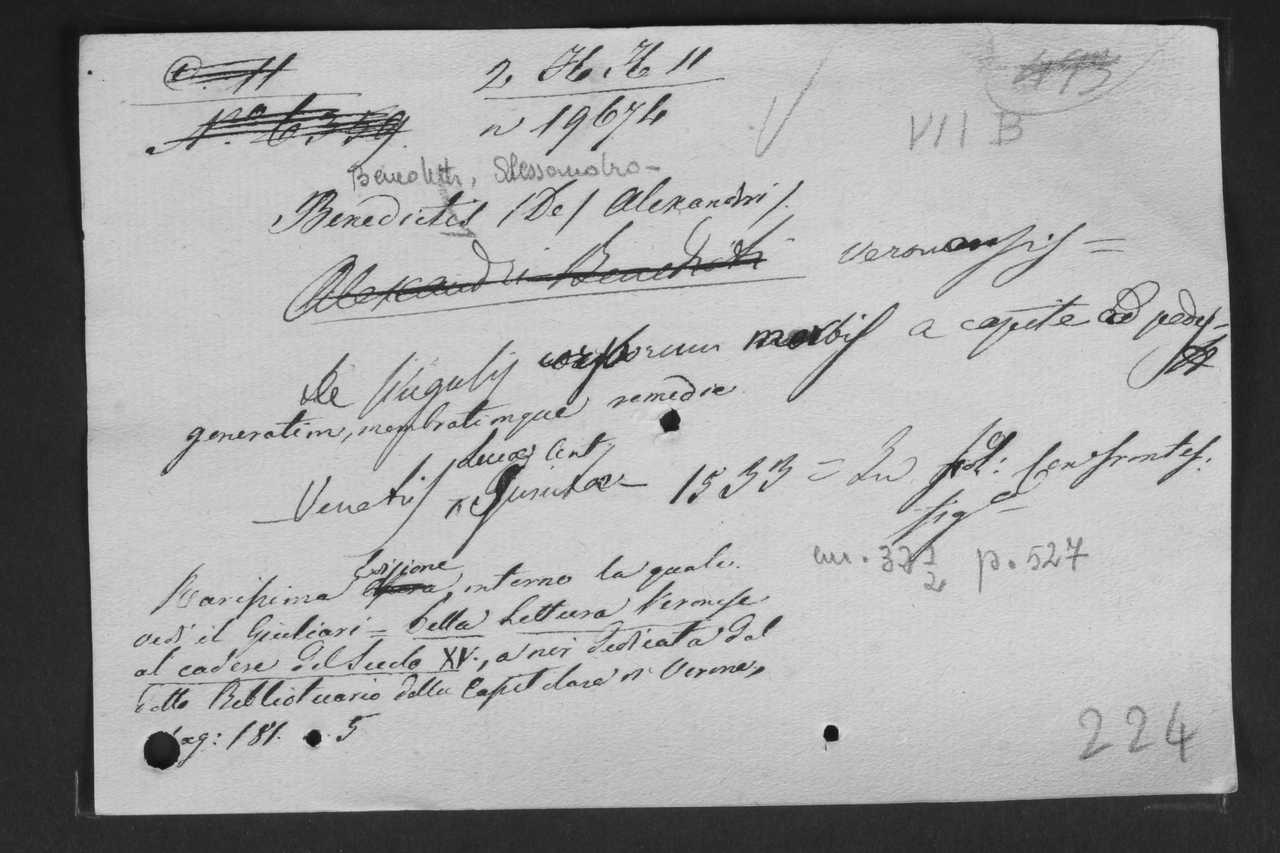 C. 11
2, H. H. 11
493
No. 6359.
n 19674
VII B
Benedetti, Alessandro -
Benedictis (De) Alexandri).
Alexandri Benedicti Veronensis =
De singulis corporum morbis a capite ad pedes
generatim, membratimque remedia
Lucæ Ant.
Venetiis Juncta 1533 = In fol: Con frontes.
fig.
mr. 33 1/2 p. 527
Edizione
Rarissima Opera, intorno la quale
vedi il Giuliari = Della Lettura Veronese
al cadere del Secolo XV., a noi dedicata dal
detto Bibliotecario della Capitolare di Verona,
pag: 181. 5
224